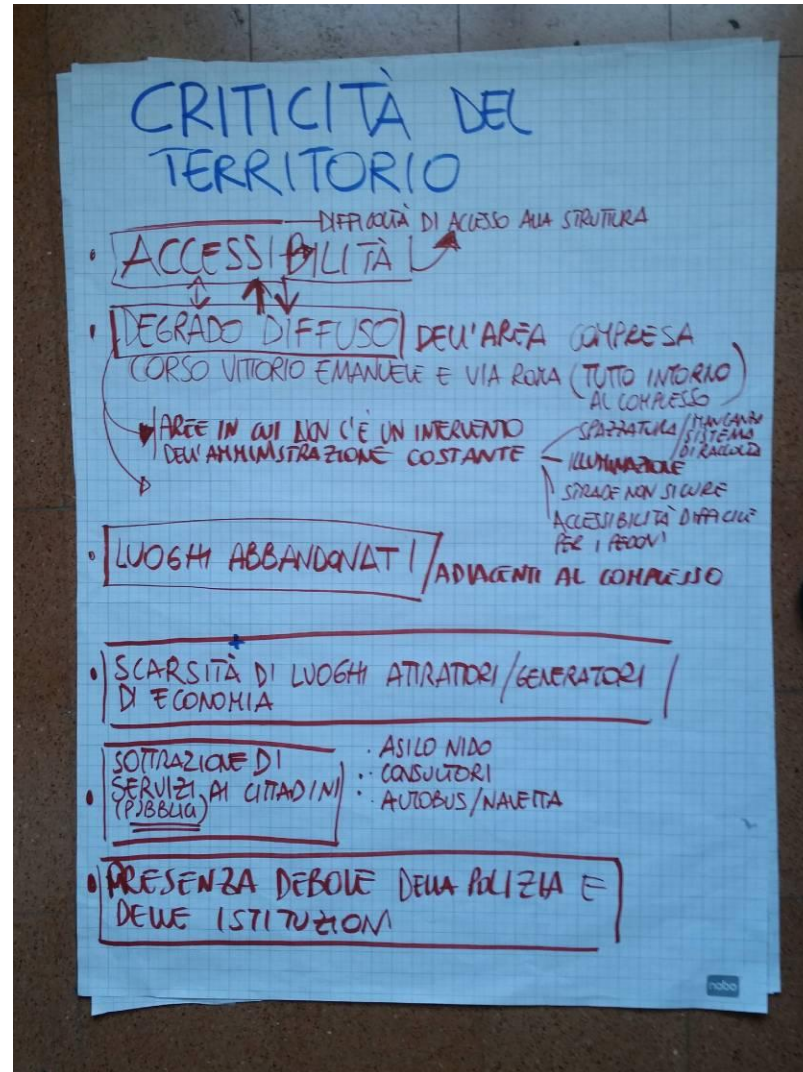 CRITICITÀ DEL
TERRITORIO
DIFFICOLTÀ DI ACCESSO ALLA STRUTTURA
• ACCESSIBILITÀ
• DEGRADO DIFFUSO DELL'AREA COMPRESA
CORSO VITTORIO EMANUELE E VIA ROMA (TUTTO INTORNO
AL COMPLESSO)
AREE IN CUI NON C'È UN INTERVENTO
DELL'AMMINISTRAZIONE COSTANTE
SPAZZATURA/MANCANZA
SISTEMA
DI RACCOLTA
ILLUMINAZIONE
STRADE NON SICURE
ACCESSIBILITÀ DIFFICILE
PER I PEDONI
• LUOGHI ABBANDONATI / ADIACENTI AL COMPLESSO
• SCARSITÀ DI LUOGHI ATTRATTORI/GENERATORI
DI ECONOMIA
• SOTTRAZIONE DI
SERVIZI AI CITTADINI
(PUBBLICI)
• ASILO NIDO
• CONSULTORI
• AUTOBUS/NAVETTA
• PRESENZA DEBOLE DELLA POLIZIA E
DELLE ISTITUZIONI
nobo